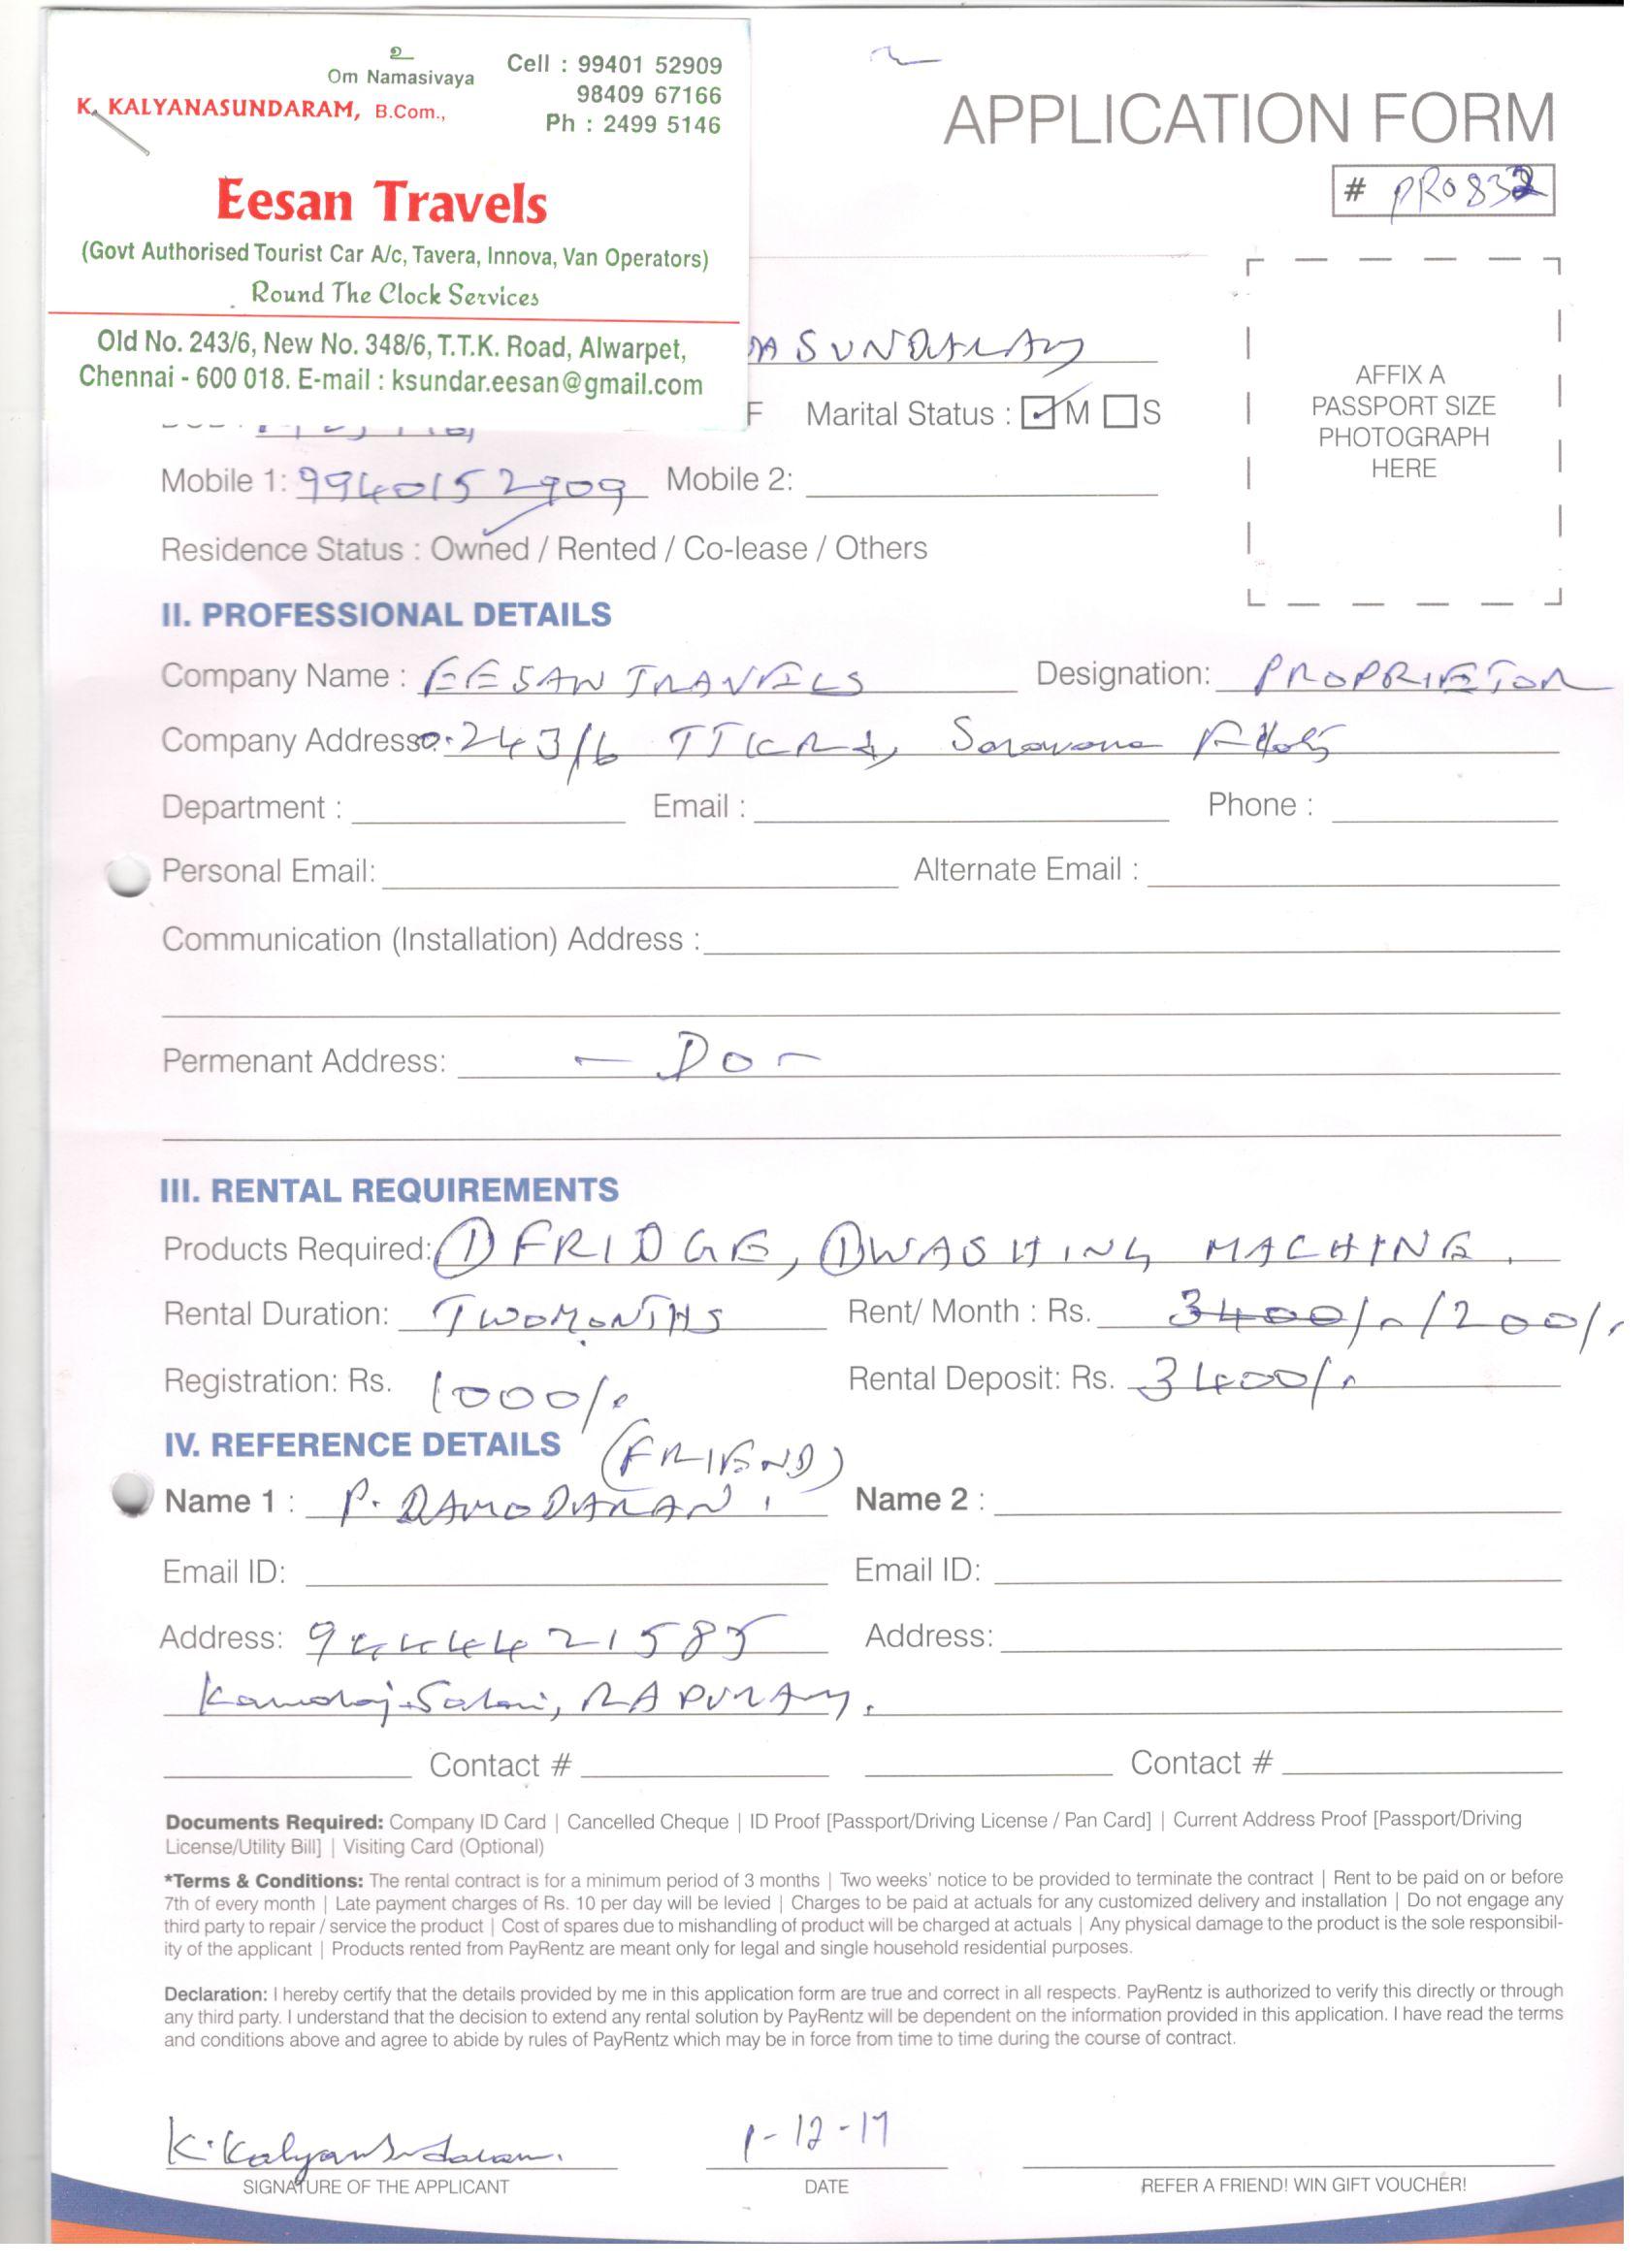 உ
Om Namasivaya
Cell : 99401 52909
98409 67166
Ph : 2499 5146
K. KALYANASUNDARAM, B.Com.,
Eesan Travels
(Govt Authorised Tourist Car A/c, Tavera, Innova, Van Operators)
Round The Clock Services
Old No. 243/6, New No. 348/6, T.T.K. Road, Alwarpet,
Chennai - 600 018. E-mail : ksundar.eesan@gmail.com
APPLICATION FORM
# PR0832
AFFIX A
PASSPORT SIZE
PHOTOGRAPH
HERE
ASUNDARAM
F Marital Status : M S
Mobile 1: 9940152909 Mobile 2:
Residence Status : Owned / Rented / Co-lease / Others
II. PROFESSIONAL DETAILS
Company Name : EESAN TRAVELS Designation: PROPRIETOR
Company Address: 243/6 TTK Rd, Saravana
Department : Email : Phone :
Personal Email: Alternate Email :
Communication (Installation) Address :
Permenant Address: - Do -
III. RENTAL REQUIREMENTS
Products Required: ① FRIDGE, ① WASHING MACHINE.
Rental Duration: TWO MONTHS Rent/ Month : Rs. 3400/- 1200/-
Registration: Rs. 1000/- Rental Deposit: Rs. 3400/-
IV. REFERENCE DETAILS (FRIEND)
Name 1 : P. DAMODARAN Name 2 :
Email ID: Email ID:
Address: 9444421585 Address:
Kamaraj Salai, RAPURAM.
Contact # Contact #
Documents Required: Company ID Card | Cancelled Cheque | ID Proof [Passport/Driving License / Pan Card] | Current Address Proof [Passport/Driving
License/Utility Bill] | Visiting Card (Optional)
*Terms & Conditions: The rental contract is for a minimum period of 3 months | Two weeks' notice to be provided to terminate the contract | Rent to be paid on or before
7th of every month | Late payment charges of Rs. 10 per day will be levied | Charges to be paid at actuals for any customized delivery and installation | Do not engage any
third party to repair / service the product | Cost of spares due to mishandling of product will be charged at actuals | Any physical damage to the product is the sole responsibil-
ity of the applicant | Products rented from PayRentz are meant only for legal and single household residential purposes.
Declaration: I hereby certify that the details provided by me in this application form are true and correct in all respects. PayRentz is authorized to verify this directly or through
any third party. I understand that the decision to extend any rental solution by PayRentz will be dependent on the information provided in this application. I have read the terms
and conditions above and agree to abide by rules of PayRentz which may be in force from time to time during the course of contract.
K. Kalyanasundaram. 1-12-17
SIGNATURE OF THE APPLICANT DATE REFER A FRIEND! WIN GIFT VOUCHER!